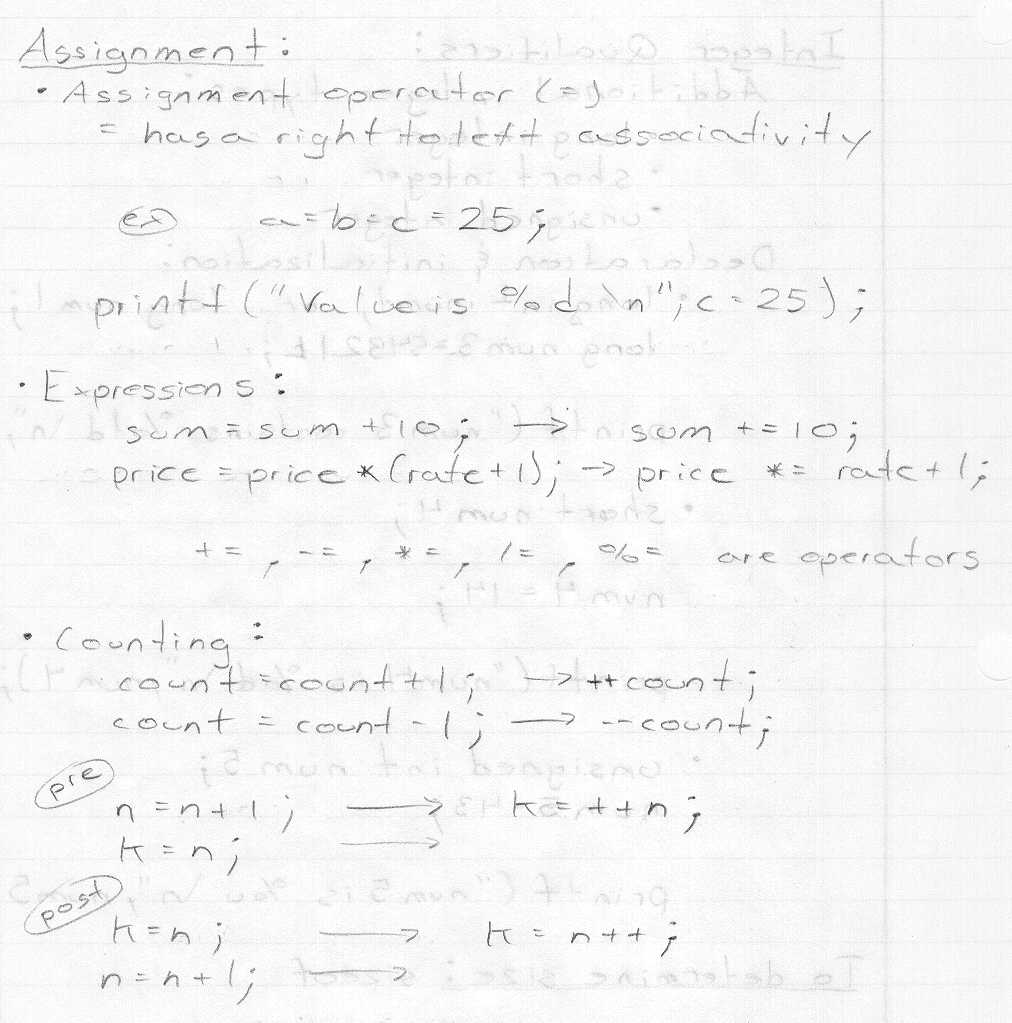 Assignment:
• Assignment operator (=)
= has a right to left associativity
ex a = b = c = 25;
printf ("Value is %d\n", c = 25);
• Expressions:
sum = sum + 10; → sum += 10;
price = price * (rate + 1); → price *= rate + 1;
+= , -= , *= , /= , %= are operators
• Counting:
count = count + 1; → ++count;
count = count - 1; → --count;
pre
n = n + 1; → k = ++n;
k = n; →
post
k = n; → k = n++;
n = n + 1; →